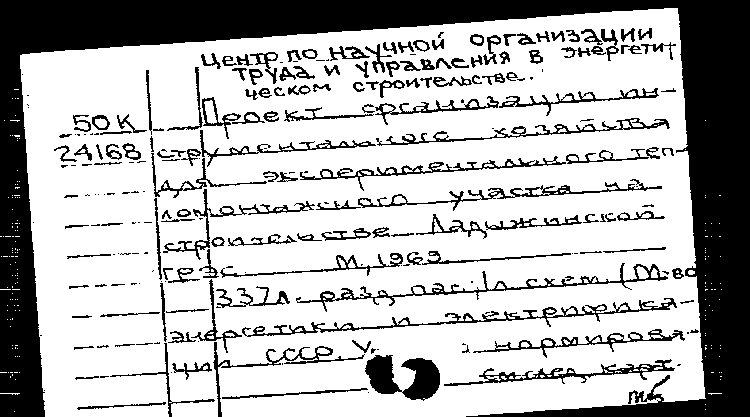 Центр по научной организации
труда и управления в энергети-
ческом строительстве.
50К
Проект организации ин-
24168
струментального хозяйства
для экспериментального теп-
ломонтажного участка на
строительстве Ладыжинской
ГРЭС М, 1969.
337л. разд. паг.; 1л схем. (М-во
энергетики и электрифика-
ции СССР. У. нормирова-
См. след. карт.